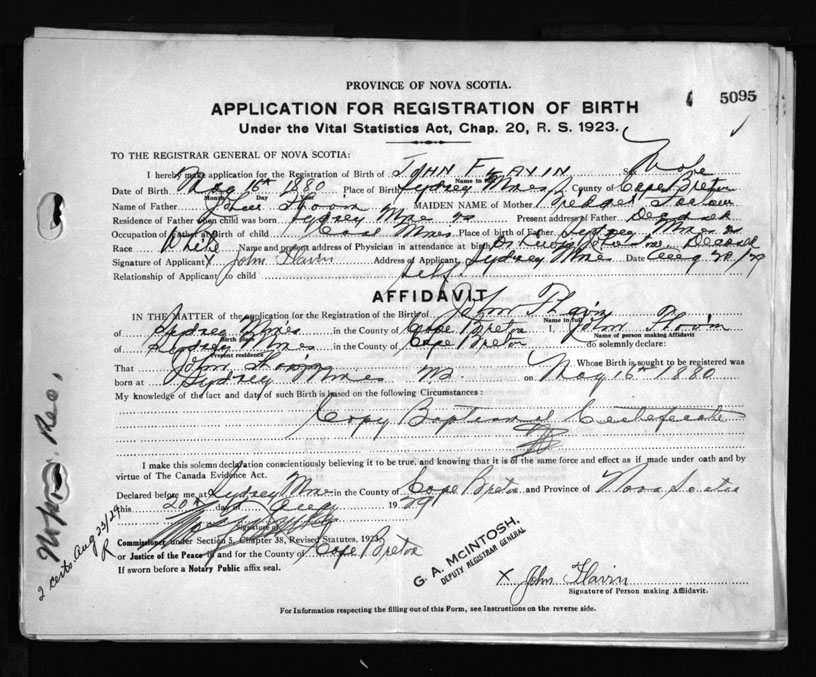 PROVINCE OF NOVA SCOTIA.
5095
APPLICATION FOR REGISTRATION OF BIRTH
Under the Vital Statistics Act, Chap. 20, R. S. 1923.
TO THE REGISTRAR GENERAL OF NOVA SCOTIA:
I hereby make application for the Registration of Birth of JOHN FLAVIN Sex Male
Name in full
Date of Birth May 16th 1880 Place of Birth Sydney Mines County of Cape Breton
Month Day Year
Name of Father MAIDEN NAME of Mother
Residence of Father when child was born Sydney Mines Present address of Father
Occupation of Father at Birth of child Coal Place of birth of Father Sydney Mines
Race White Name and present address of Physician in attendance at birth Dr
Signature of Applicant X John Flavin Address of Applicant Sydney Mines Date Aug 20/29
Relationship of Applicant to child self.
AFFIDAVIT
IN THE MATTER of the application for the Registration of the Birth of John Flavin
Name in full
of Sydney Mines in the County of Cape Breton I, John Flavin
Birth place Name of person making Affidavit
of Sydney Mines in the County of Cape Breton do solemnly declare:
Present residence
That John Flavin Whose Birth is sought to be registered was
born at Sydney Mines NS on May 16th 1880
My knowledge of the fact and date of such Birth is based on the following Circumstances:
Copy Baptismal Certificate
I make this solemn declaration conscientiously believing it to be true, and knowing that it is of the same force and effect as if made under oath and by
virtue of The Canada Evidence Act.
Declared before me at Sydney Mines in the County of Cape Breton and Province of Nova Scotia
this 20th day of Aug 1929
Signature of
Commissioner under Section 5, Chapter 38, Revised Statutes, 1923
or Justice of the Peace in and for the County of Cape Breton
If sworn before a Notary Public affix seal.
G. A. McINTOSH,
DEPUTY REGISTRAR GENERAL
X John Flavin
Signature of Person making Affidavit.
For Information respecting the filling out of this Form, see Instructions on the reverse side.
2 certs Aug 23/29
R